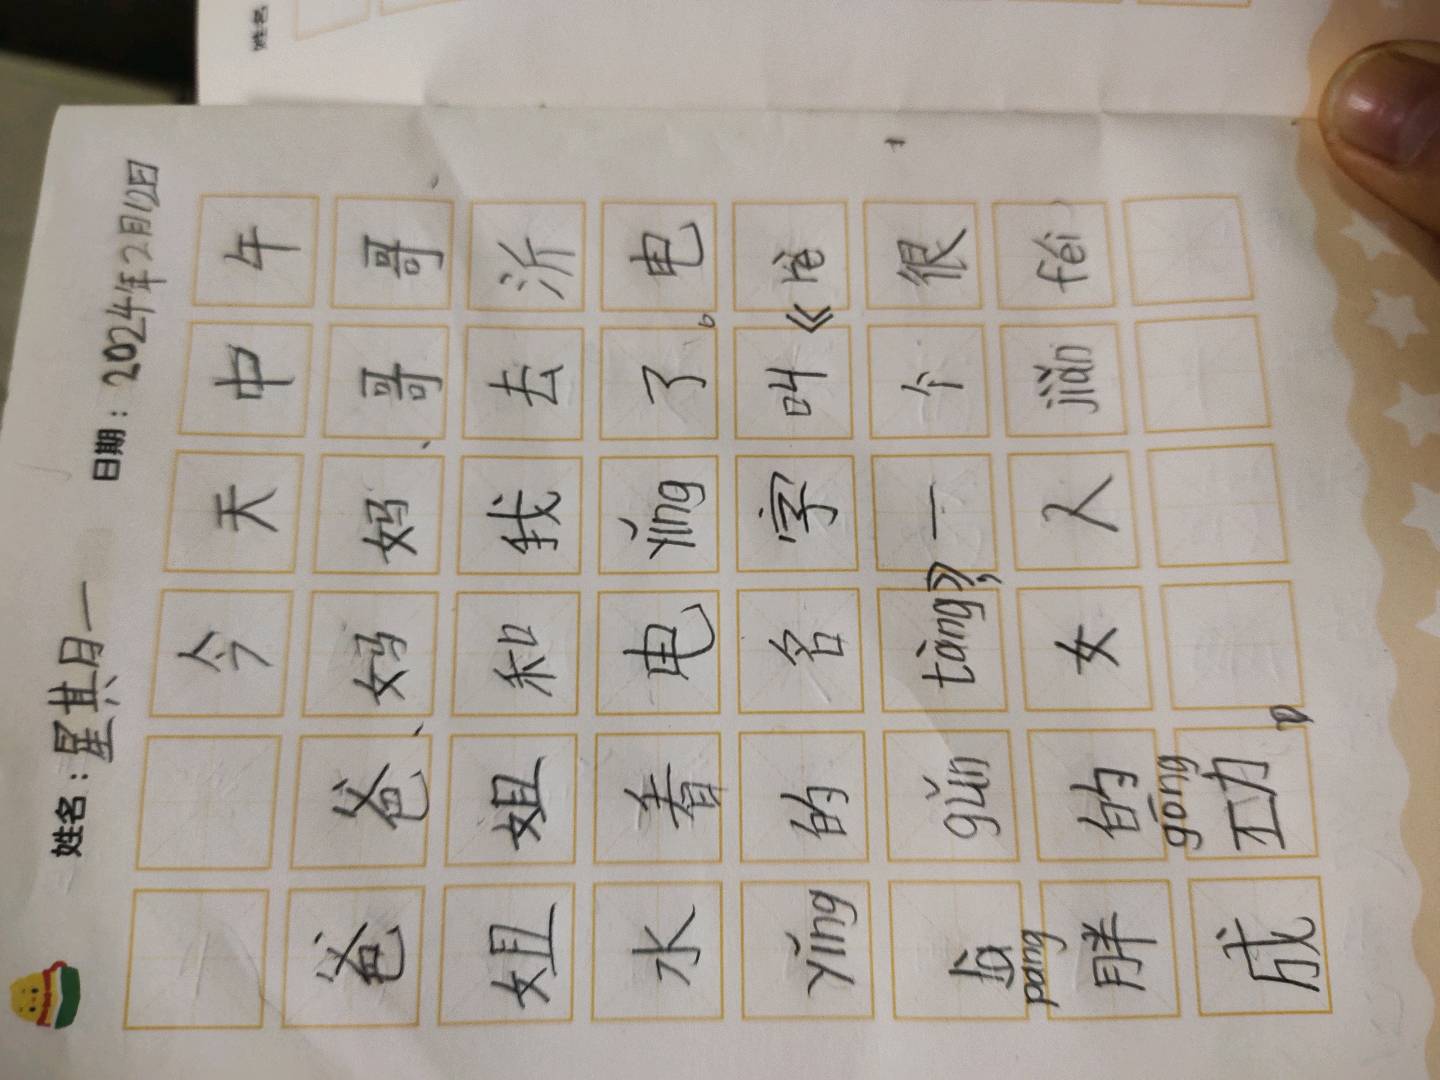 姓名
姓名：星其月一 日期：2024年2月12日
今天中午
爸爸、妈妈、哥哥、
姐姐和我去沂
水看电yǐng了。电
yǐng的名字叫《rè
là gǔn tàng》，一个很
pang
胖的女人jiǎn féi
gōng
成功。